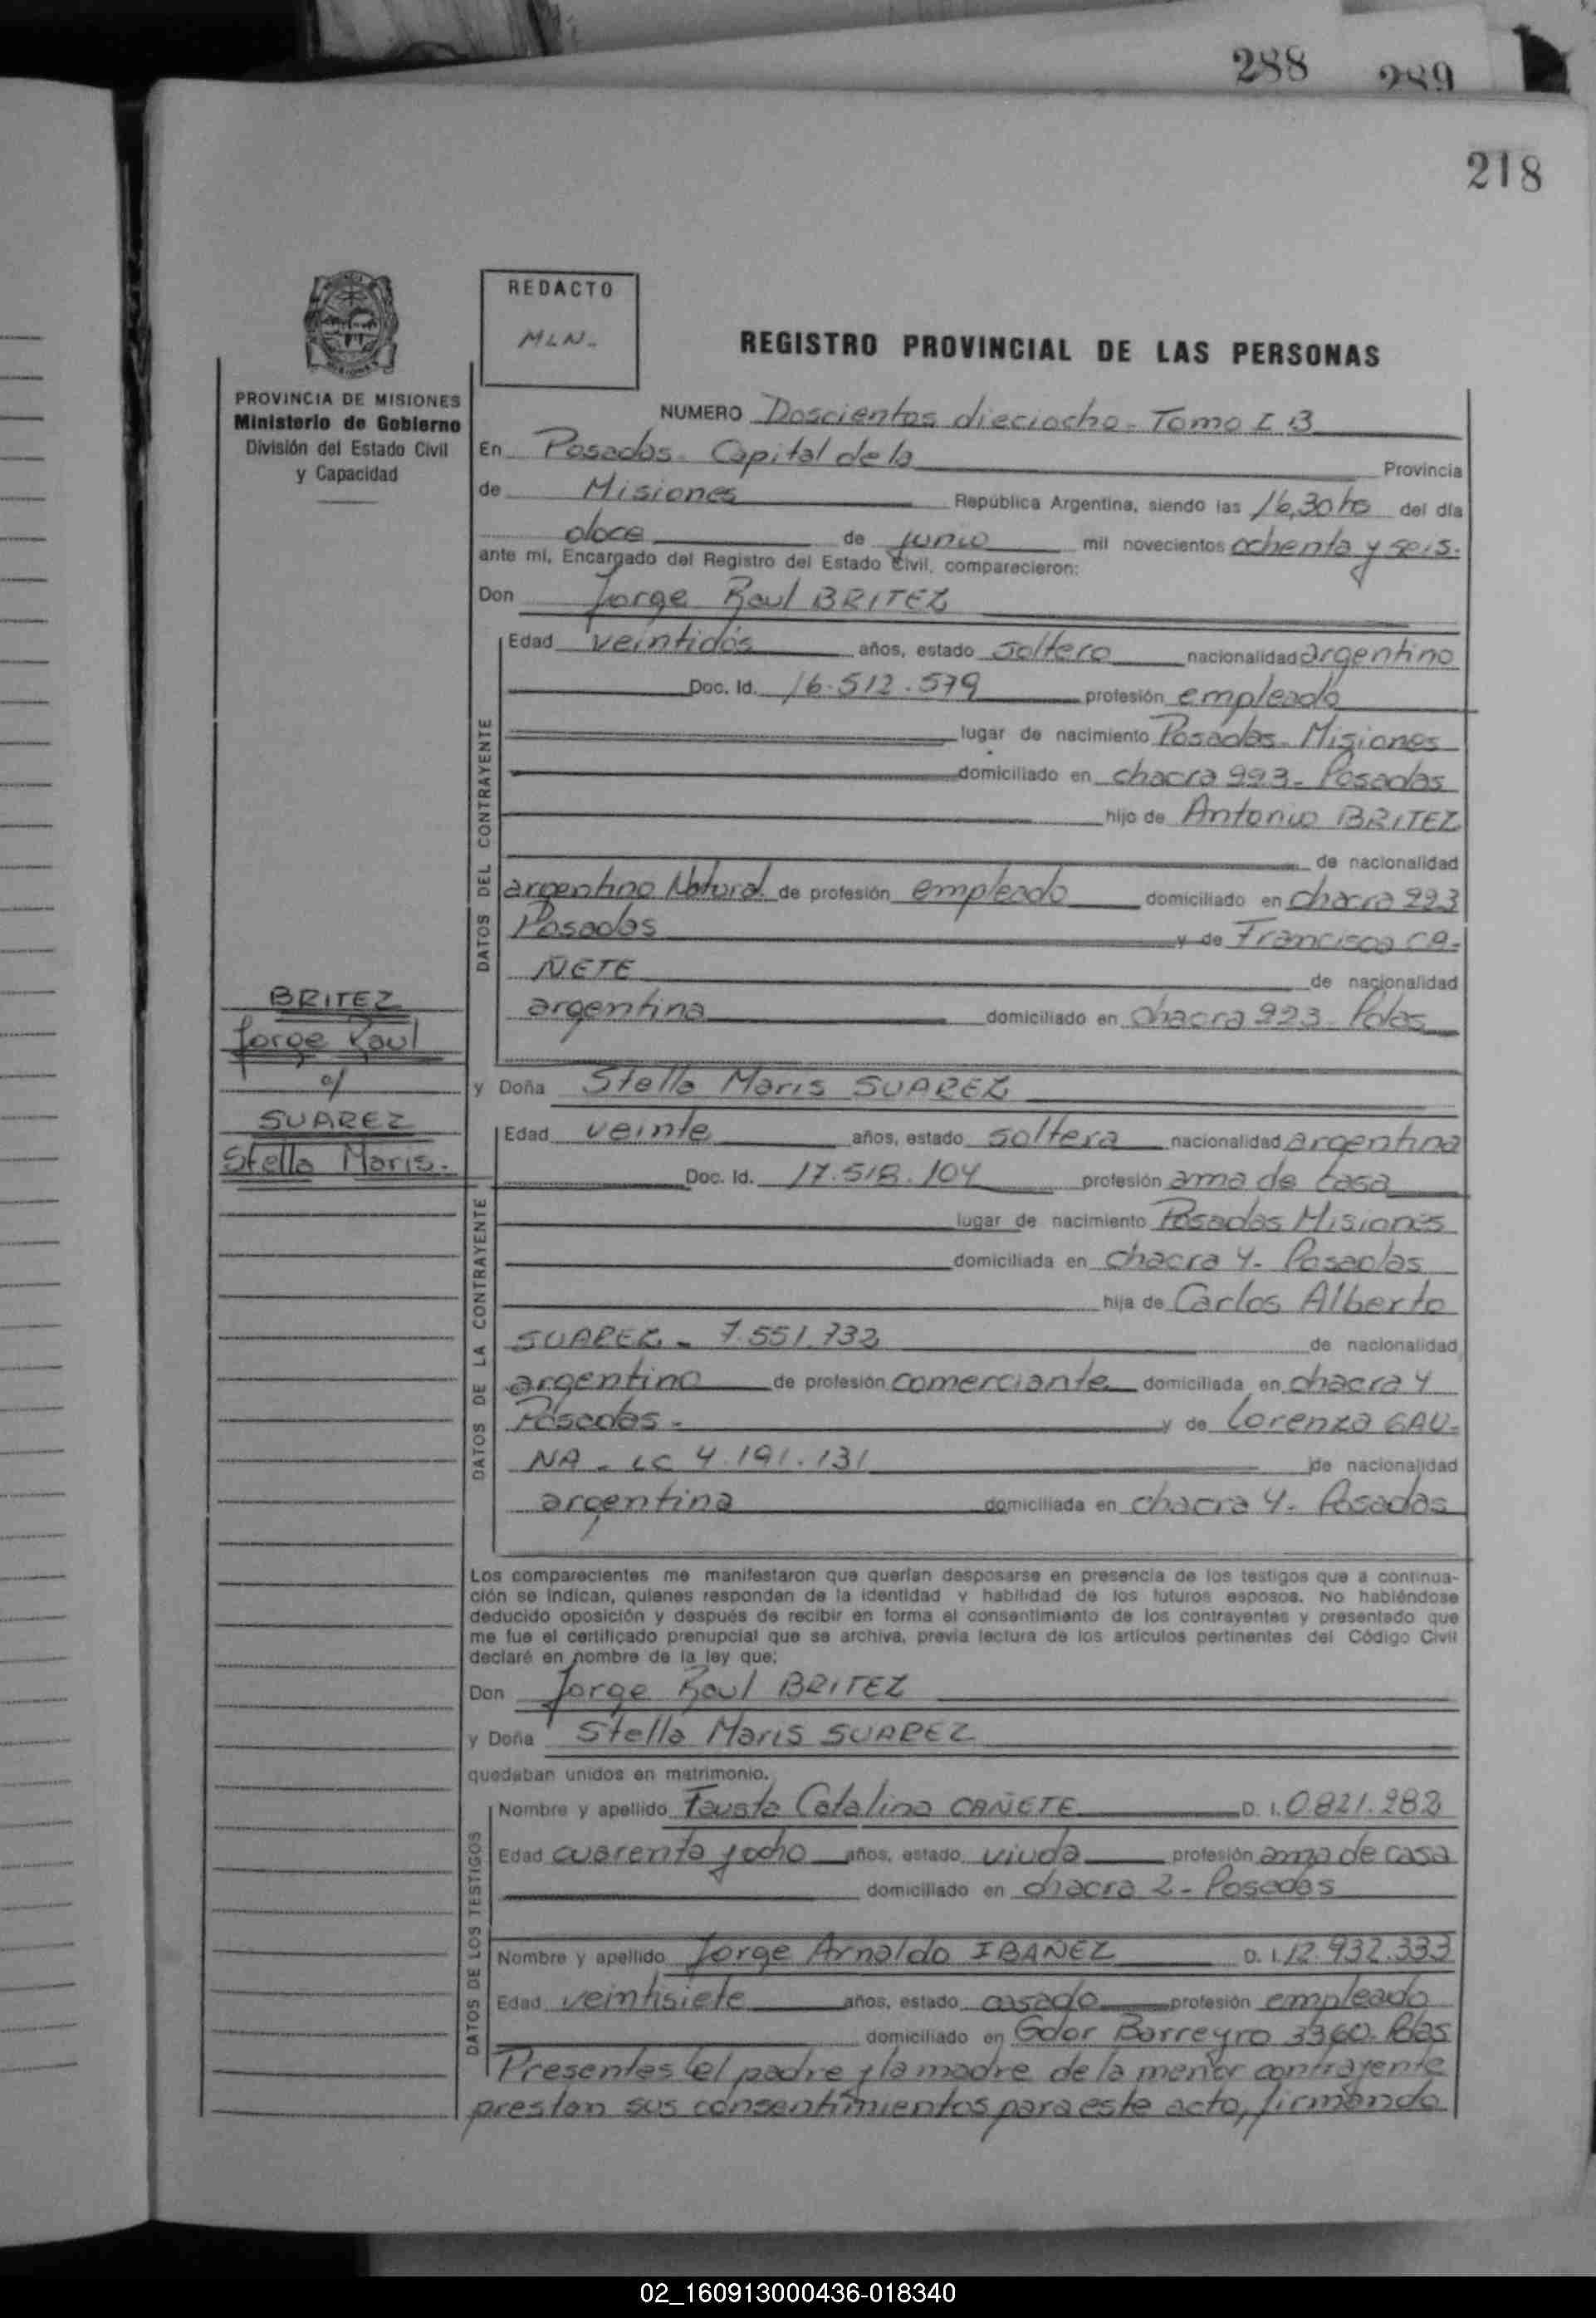 288 289
218
REDACTO
MLN.
REGISTRO PROVINCIAL DE LAS PERSONAS
PROVINCIA DE MISIONES
Ministerio de Gobierno
División del Estado Civil
y Capacidad
NUMERO Doscientos dieciocho - Tomo I B
En Posadas - Capital de la Provincia
de Misiones República Argentina, siendo las 16,30 hs del día
doce de junio mil novecientos ochenta y seis.
ante mí, Encargado del Registro del Estado Civil, comparecieron:
Don Jorge Raul BRITEZ
DATOS DEL CONTRAYENTE
Edad veintidós años, estado soltero nacionalidad argentino
Doc. Id. 16.512.579 profesión empleado
lugar de nacimiento Posadas - Misiones
domiciliado en chacra 223 - Posadas
hijo de Antonio BRITEZ
de nacionalidad
argentino Natural de profesión empleado domiciliado en chacra 223
Posadas y de Francisca CA-
ÑETE de nacionalidad
argentina domiciliado en chacra 223 - Pdas
BRITEZ
Jorge Raul
c/
SUAREZ
Stella Maris.
y Doña Stella Maris SUAREZ
DATOS DE LA CONTRAYENTE
Edad veinte años, estado soltera nacionalidad argentina
Doc. Id. 17.518.104 profesión ama de casa
lugar de nacimiento Posadas Misiones
domiciliada en chacra 4 - Posadas
hija de Carlos Alberto
SUAREZ - 7.551.732 de nacionalidad
argentino de profesión comerciante domiciliada en chacra 4
Posadas - y de Lorenza GAU-
NA - LC 4.191.131 de nacionalidad
argentina domiciliada en chacra 4 - Posadas
Los comparecientes me manifestaron que querían desposarse en presencia de los testigos que a continua-
ción se indican, quienes responden de la identidad y habilidad de los futuros esposos. No habiéndose
deducido oposición y después de recibir en forma el consentimiento de los contrayentes y presentado que
me fue el certificado prenupcial que se archiva, previa lectura de los artículos pertinentes del Código Civil
declaré en nombre de la ley que:
Don Jorge Raul BRITEZ
y Doña Stella Maris SUAREZ
quedaban unidos en matrimonio.
DATOS DE LOS TESTIGOS
Nombre y apellido Fausta Catalina CAÑETE D. I. 0.821.282
Edad cuarenta y ocho años, estado viuda profesión ama de casa
domiciliado en chacra 2 - Posadas
Nombre y apellido Jorge Arnaldo IBAÑEZ D. I. 12.932.333
Edad veintisiete años, estado casado profesión empleado
domiciliado en Gdor Barreyro 3360 - Pdas
Presentes el padre y la madre de la menor contrayente
prestan sus consentimientos para este acto, firmando
02_160913000436-018340